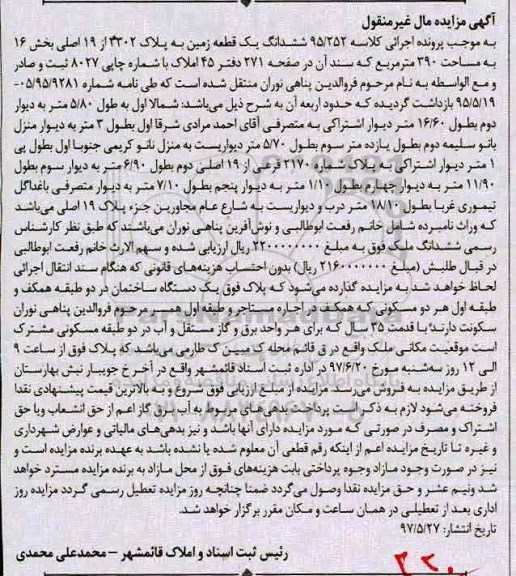 آگهی مزایده مال غیرمنقول
به موجب پرونده اجرائی کلاسه ۹۵/۲۵۲ ششدانگ یک قطعه زمین به پلاک ۳۳۰۲ از ۱۹ اصلی بخش ۱۶
به مساحت ۳۹۰ مترمربع که سند آن در صفحه ۲۷۱ دفتر ۴۵ املاک با شماره چاپی ۸۰۲۷ ثبت و صادر
و مع الواسطه به نام مرحوم فروالدین پناهی نوران منتقل شده است که طی نامه شماره ۰۵/۹۵/۹۲۸۱-
۹۵/۵/۱۹ بازداشت گردیده که حدود اربعه آن به شرح ذیل می‌باشد: شمالا اول به طول ۵/۸۰ متر به دیوار
دوم بطول ۱۶/۶۰ متر دیوار اشتراکی به متصرفی آقای احمد مرادی شرقا اول بطول ۳ متر به دیوار منزل
بانو سلیمه دوم بطول یازده متر سوم بطول ۵/۷۰ متر دیواریست به منزل بانو کریمی جنوبا اول بطول پی
۱ متر دیوار اشتراکی به پلاک شماره ۲۱۷۰ فرعی از ۱۹ اصلی دوم بطول ۶/۹۰ متر به دیوار سوم بطول
۱۱/۹۰ متر به دیوار چهارم بطول ۱/۱۰ متر به دیوار پنجم بطول ۷/۱۰ متر به دیوار متصرفی باغداگل
تیموری غربا بطول ۱۸/۱۰ متر درب و دیواریست به شارع عام مجاورین جزء پلاک ۱۹ اصلی می‌باشد
که وراث نامبرده شامل خانم رفعت ابوطالبی و نوش‌آفرین پناهی نوران می‌باشند که طبق نظر کارشناس
رسمی ششدانگ ملک فوق به مبلغ ۲۲۰۰۰۰۰۰۰۰ ریال ارزیابی شده و سهم الارث خانم رفعت ابوطالبی
در قبال طلبش (مبلغ ۲۱۶۰۰۰۰۰۰۰ ریال) بدون احتساب هزینه‌های قانونی که هنگام سند انتقال اجرائی
لحاظ خواهد شد به مزایده گذارده می‌شود که پلاک فوق یک دستگاه ساختمان در دو طبقه همکف و
طبقه اول هر دو مسکونی که همکف در اجاره مستاجر و طبقه اول همسر مرحوم فروالدین پناهی نوران
سکونت دارند؛ با قدمت ۳۵ سال که برای هر واحد برق و گاز مستقل و آب در دو طبقه مسکونی مشترک
است موقعیت مکانی ملک واقع در ق قائم محله ک طارمی می‌باشد که پلاک فوق از ساعت ۹
الی ۱۲ روز سه‌شنبه مورخ ۹۷/۶/۲۰ در اداره ثبت اسناد قائمشهر واقع در آخر خ جویبار نبش بهارستان
از طریق مزایده به فروش می‌رسد مزایده از مبلغ ارزیابی فوق شروع و به بالاترین قیمت پیشنهادی نقدا
فروخته می‌شود لازم به ذکر است پرداخت بدهی‌های مربوط به آب برق گاز اعم از حق انشعاب و یا حق
اشتراک و مصرف در صورتی که مورد مزایده دارای آنها باشد و نیز بدهی‌های مالیاتی و عوارض شهرداری
و غیره تا تاریخ مزایده اعم از اینکه رقم قطعی آن معلوم شده یا نشده باشد به عهده برنده مزایده است و
نیز در صورت وجود مازاد وجوه پرداختی بابت هزینه‌های فوق از محل مازاد به برنده مزایده مسترد خواهد
شد ونیم عشر و حق مزایده نقدا وصول می‌گردد ضمنا چنانچه روز مزایده تعطیل رسمی گردد مزایده روز
اداری بعد از تعطیلی در همان ساعت و مکان مقرر برگزار خواهد شد.
تاریخ انتشار: ۹۷/۵/۲۷
رئیس ثبت اسناد و املاک قائمشهر – محمدعلی محمدی